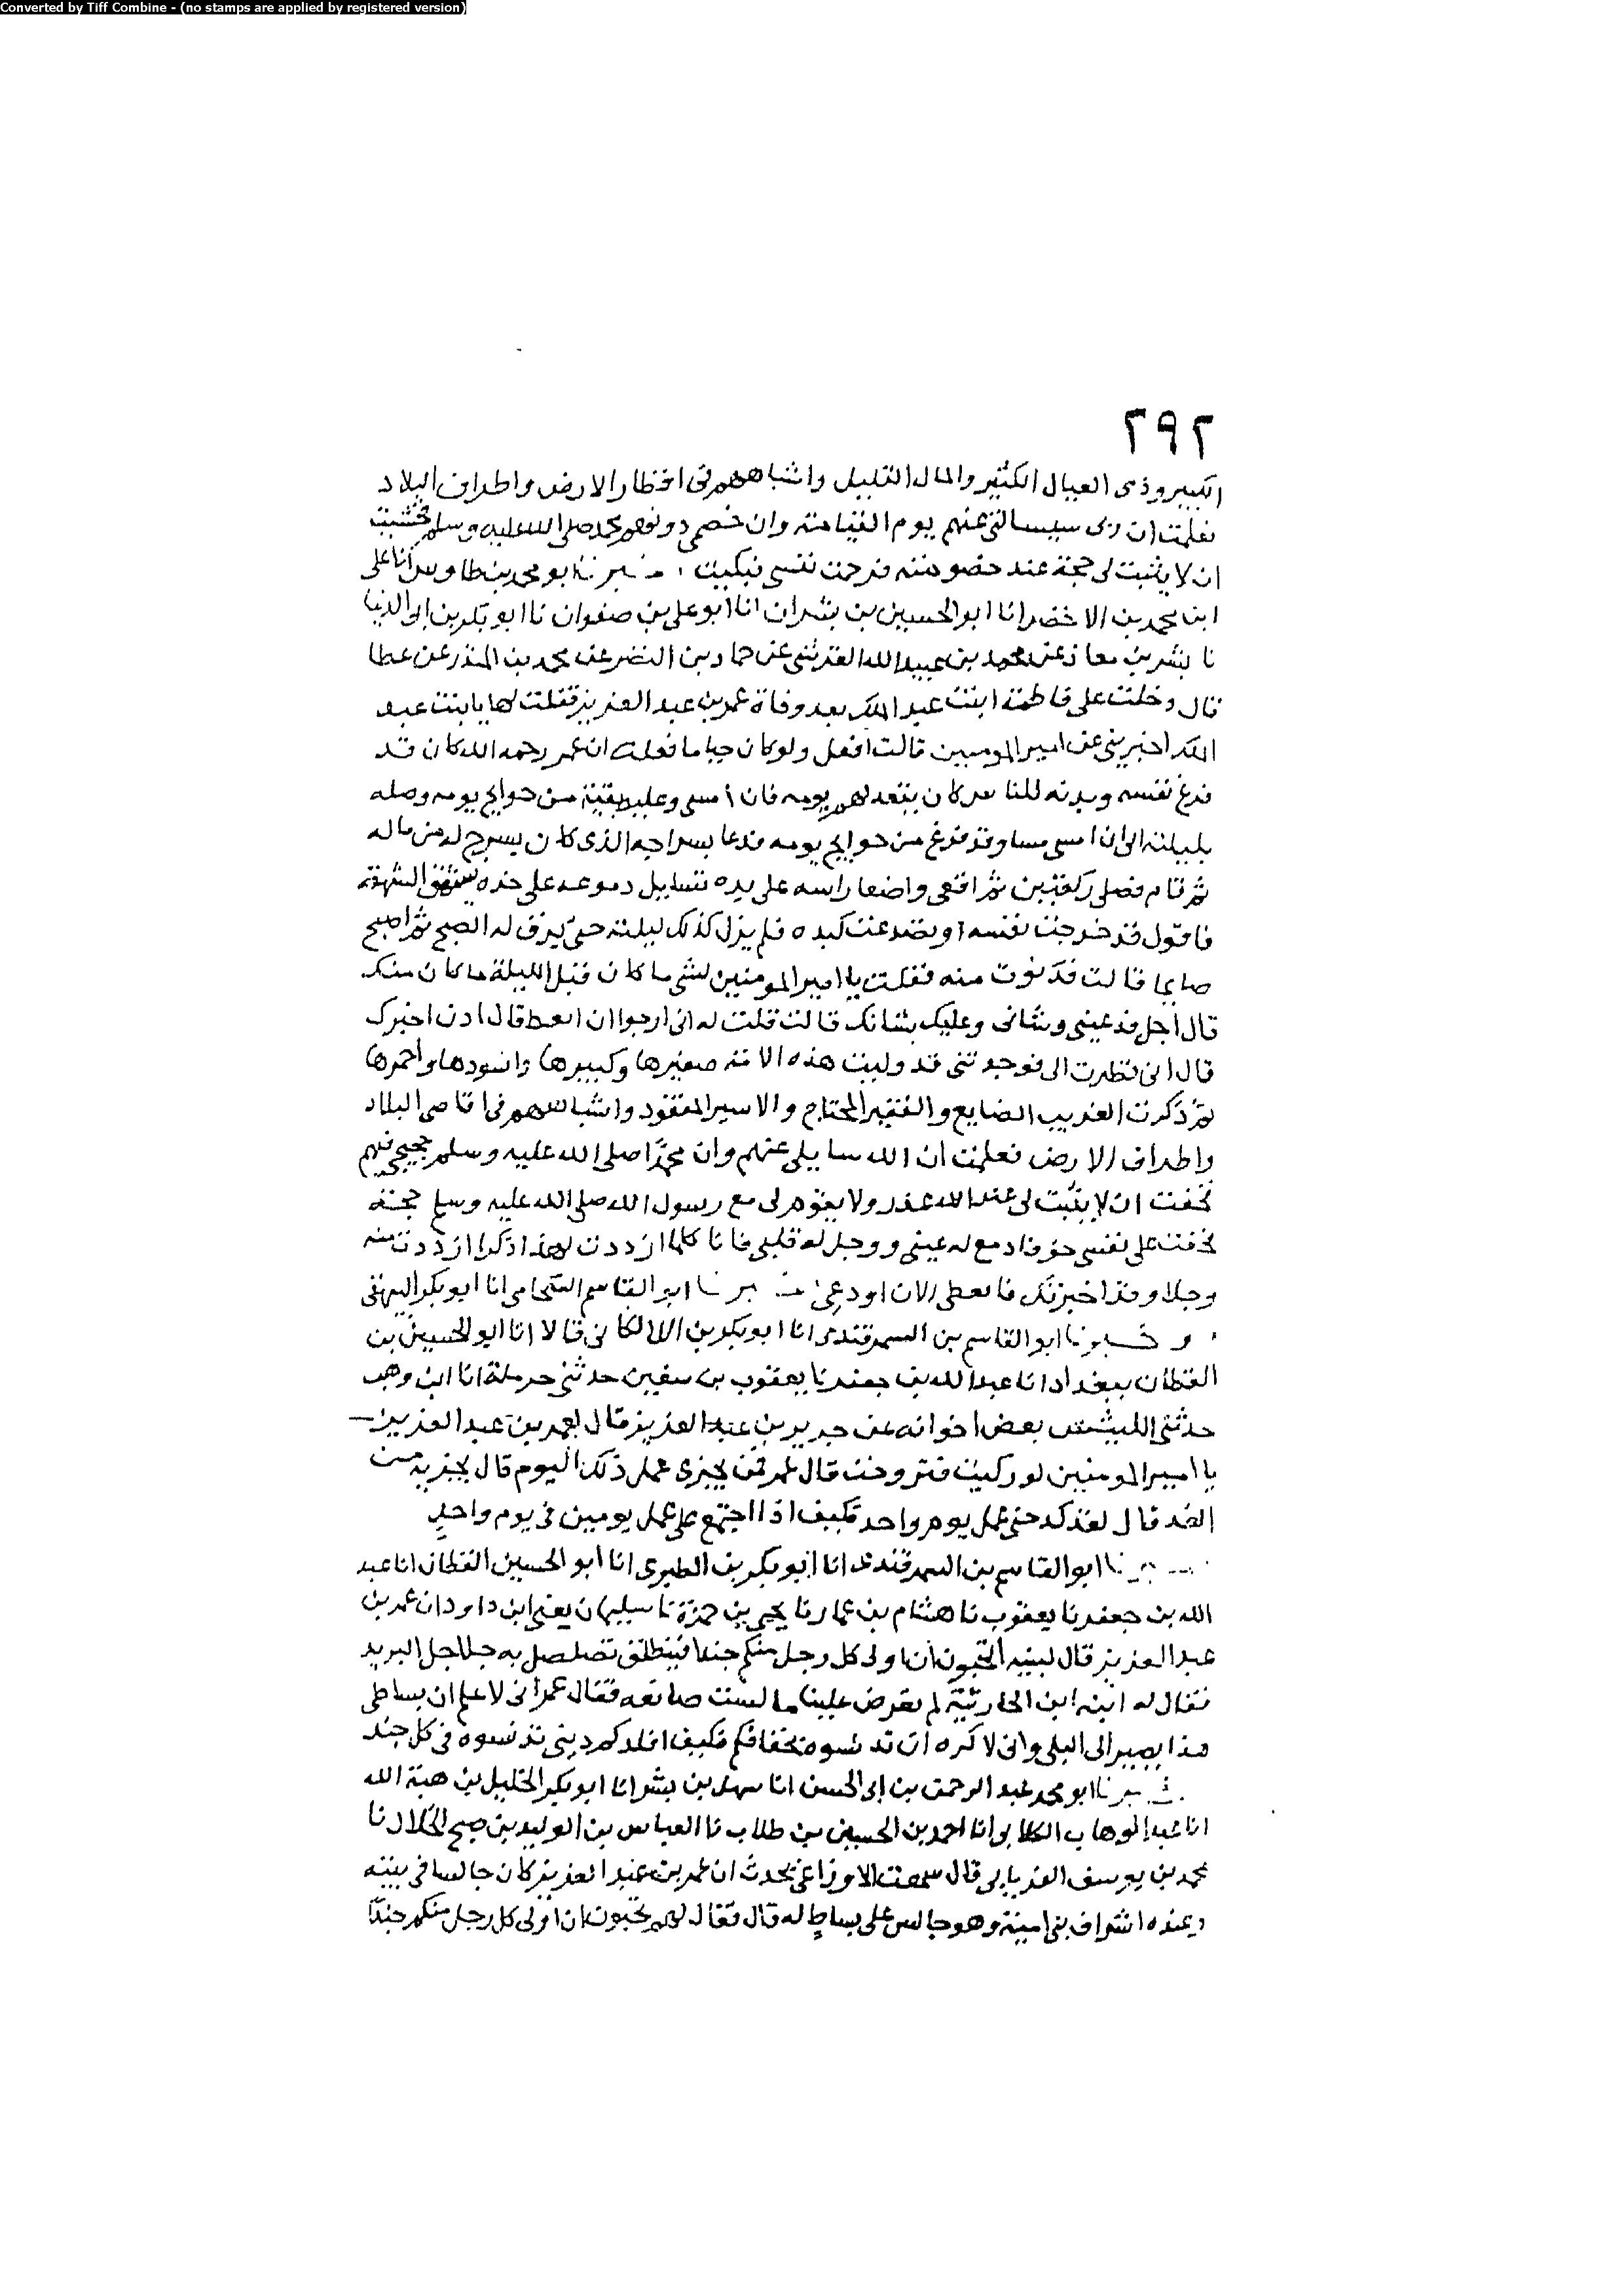 Converted by Tiff Combine - (no stamps are applied by registered version)
٢٩٢
الكبير وذى العيال الكثير والمال القليل واشباههم فى اقطار الارض واطراف البلاد
فعلمت ان ربى سيسالنى عنهم يوم القيامة وان خصمى دونهم محمد صلى الله عليه وسلم فخشيت
ان لا يثبت لى حجة عند خصومته فرحمت نفسى فبكيت . خبرنا ابو محمد بن طاوس انا على
ابن محمد بن الاخضر انا ابو الحسين بن بشران انا ابو على بن صفوان نا ابو بكر بن ابى الدنيا
نا بشر بن معاذ عن محمد بن عبيد الله القرشى عن حماد بن النضر عن محمد بن المنذر عن عطا
قال دخلت على فاطمة ابنت عبد الملك بعد وفاة عمر بن عبد العزيز فقلت لها يا بنت عبد
الملك اخبرينى عن امير المومنين قالت افعل ولو كان حيا ما فعلت ان عمر رحمه الله كان قد
فرغ نفسه وبدنه للناس كان يقعد لهم يومه فان امسى وعليه بقية من حوايج يومه وصله
بليلته الى ان امسى مسا وقد فرغ من حوايج يومه فدعا بسراجه الذى كان يسرج له من ماله
ثم قام فصلى ركعتين ثم اقعى واضعا راسه على يده تتسايل دموعه على خده يشهق الشهقة
فاقول قد خرجت نفسه او تصدعت كبده فلم يزل كذلك ليلته حتى برق له الصبح ثم اصبح
صايما قالت فدنوت منه فقلت يا امير المومنين لشى ما كان قبل الليلة ما كان منك
قال اجل فدعينى وشانى وعليك بشانك قالت قلت له انى ارجوا ان اتعظ قال اذن اخبرك
قال انى نظرت الى فوجدتنى قد وليت هذه الامة صغيرها وكبيرها واسودها واحمرها
ثم ذكرت الغريب الضايع والفقير المحتاج والاسير المفقود واشباههم فى اقاصى البلاد
واطراف الارض فعلمت ان الله سايلى عنهم وان محمدا صلى الله عليه وسلم حجيجى فيهم
فخفت ان لا يثبت لى عند الله عذر ولا يقوم لى مع رسول الله صلى الله عليه وسلم حجة
فخفت على نفسى خوفا دمع له عينى ووجل له قلبى فانا كلما ازددت لهذا ذكرا ازددت منه
وجلا وقد اخبرتك فاتعظى الان او دعى خبرنا ابو القاسم الشحامى انا ابو بكر البيهقى
وخبرنا ابو القاسم بن السمرقندى انا ابو بكر بن اللالكانى قالا انا ابو الحسين بن
القطان ببغداد انا عبد الله بن جعفر نا يعقوب بن سفين حدثنى حرملة انا ابن وهب
حدثنى الليث عن بعض اخوانه عن جرير بن عبد العزيز قال لعمر بن عبد العزيز
يا امير المومنين لو ركبت فتروحت قال عمر فمن يجزى عمل ذلك اليوم قال يجزيه من
الغد قال لقد كدحنى عمل يوم واحد فكيف اذا اجتمع على عمل يومين فى يوم واحد
خبرنا ابو القاسم بن السمرقندى انا ابو بكر بن الطبرى انا أبو الحسين القطان انا عبد
الله بن جعفر نا يعقوب نا هشام بن عمار نا يحيى بن حمزة نا سليمان يعنى ابن داود ان عمر بن
عبد العزيز قال لبنيه اتحبون ان اولى كل رجل منكم جندا فينطلق تصلصل به جلاجل البريد
فقال له ابنه ابن الحارثية لم تعرض علينا ما لست صانعه فقال عمر انى لا علم ان بساطى
هذا يصير الى البلى وانى لا كره ان تدنسوه بخفافكم فكيف اقلدكم دينى تدنسوه فى كل جند
خبرنا ابو محمد عبد الرحمن بن ابى الحسن انا سهل بن بشر انا ابو بكر الخليل بن هبة الله
انا عبد الوهاب الكلابى انا احمد بن الحسين بن طلاب نا العباس بن الوليد بن صبح الخلال نا
محمد بن يوسف الفريابى قال سمعت الاوزاعى يحدث ان عمر بن عبد العزيز كان جالسا فى بيته
وعنده اشراف بنى امية وهو جالس على بساط له قال فقال لهم تحبون ان اولى كل رجل منكم جندا